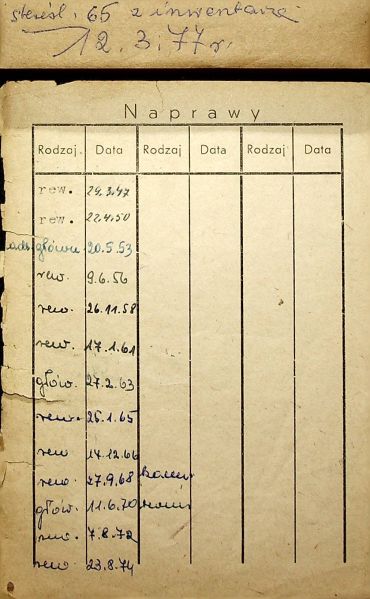 65 z inwentarza
12.3.77r.
Naprawy
Rodzaj Data Rodzaj Data Rodzaj Data
rew. 29.3.47
rew. 22.4.50
główna 20.5.53
rew. 9.6.56
rew. 26.11.58
rew. 17.1.61
głów. 27.2.63
rew. 25.1.65
rew 14.12.66
rew. 27.9.68
głów. 11.6.70
rew. 7.8.72
rew 23.8.74